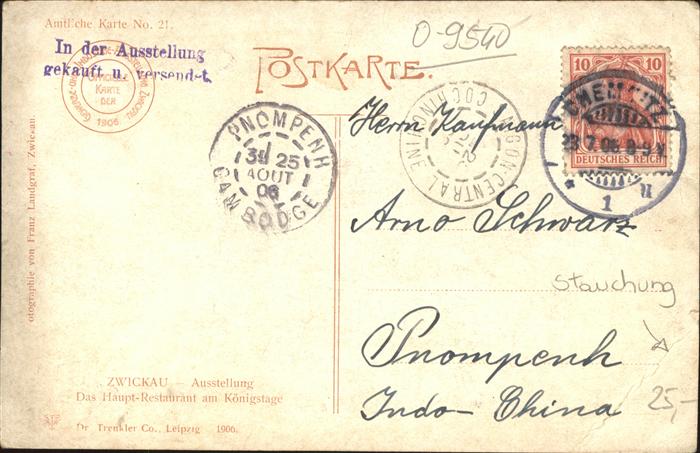 Amtliche Karte No. 21.
In der Ausstellung
gekauft u. versendet.
OFFICIELLE
KARTE
DER
1906
POSTKARTE.
0-9540
10 10
DEUTSCHES REICH
CHEMNITZ
23.7.06. 8-9 V
1
PNOMPENH
25
AOUT
06
CAMBODGE
SAIGON CENTRAL
COCHINCHINE
Herrn Kaufmann
Arno Schwarz
Pnompenh
Indo-China
Stauchung
25,-
otographie von Franz Landgraf, Zwickau.
ZWICKAU — Ausstellung
Das Haupt-Restaurant am Königstage
Dr. Trenkler Co., Leipzig 1906.